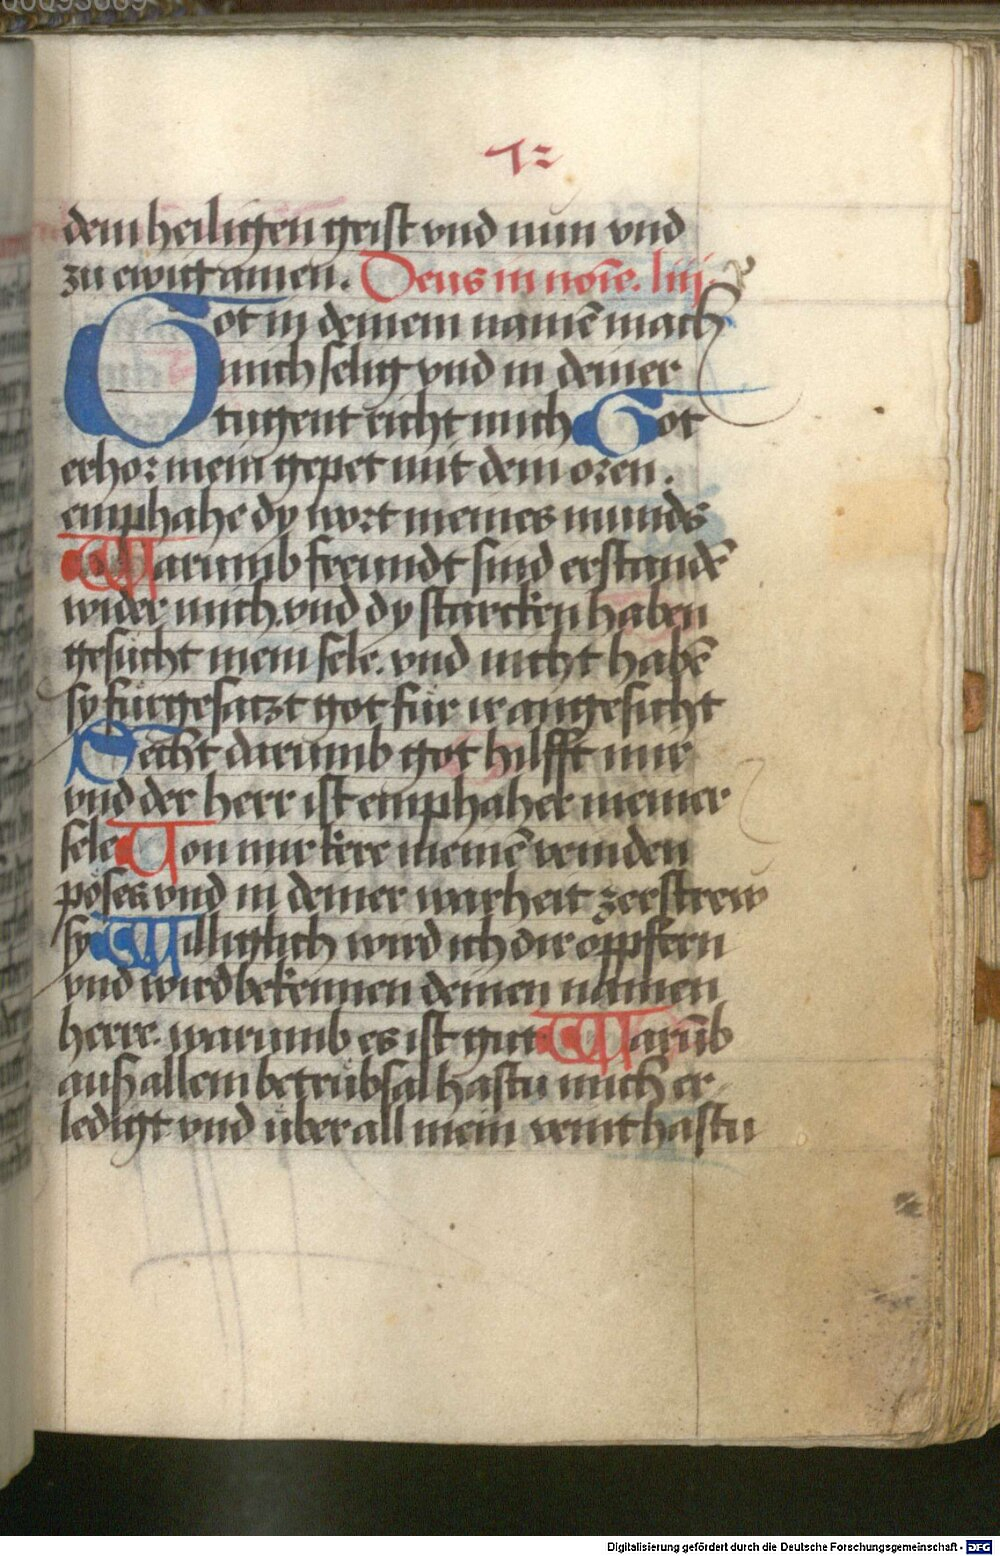 dem heiligen geist vnd nun vnd
zu ewig amen. Deus in noīe. liij.
Got in deinem namē mach
mich selig vnd in deiner
tugent richt mich Got
erhor mein gepet mit dem oren.
emphahe dy wort meines munds
Warumb freundt sind erstandē
wider mich. vnd dy starcken haben
gesücht mein sele. vnd nicht habē
sy fürgesatzt got für ir angesicht
Secht darumb got hilfft mir
vnd der herr ist emphaher meiner
sele Von mir kere meinē veinden
pöses vnd in deiner warheit zerstrew
sy Williglich wird ich dir opppfern
vnd wird bekennen deinen namen
herre. warumb es ist gut Warūb
auß allem betrübsal hastu mich er-
ledigt vnd über all mein veint hastu
Digitalisierung gefördert durch die Deutsche Forschungsgemeinschaft - DFG